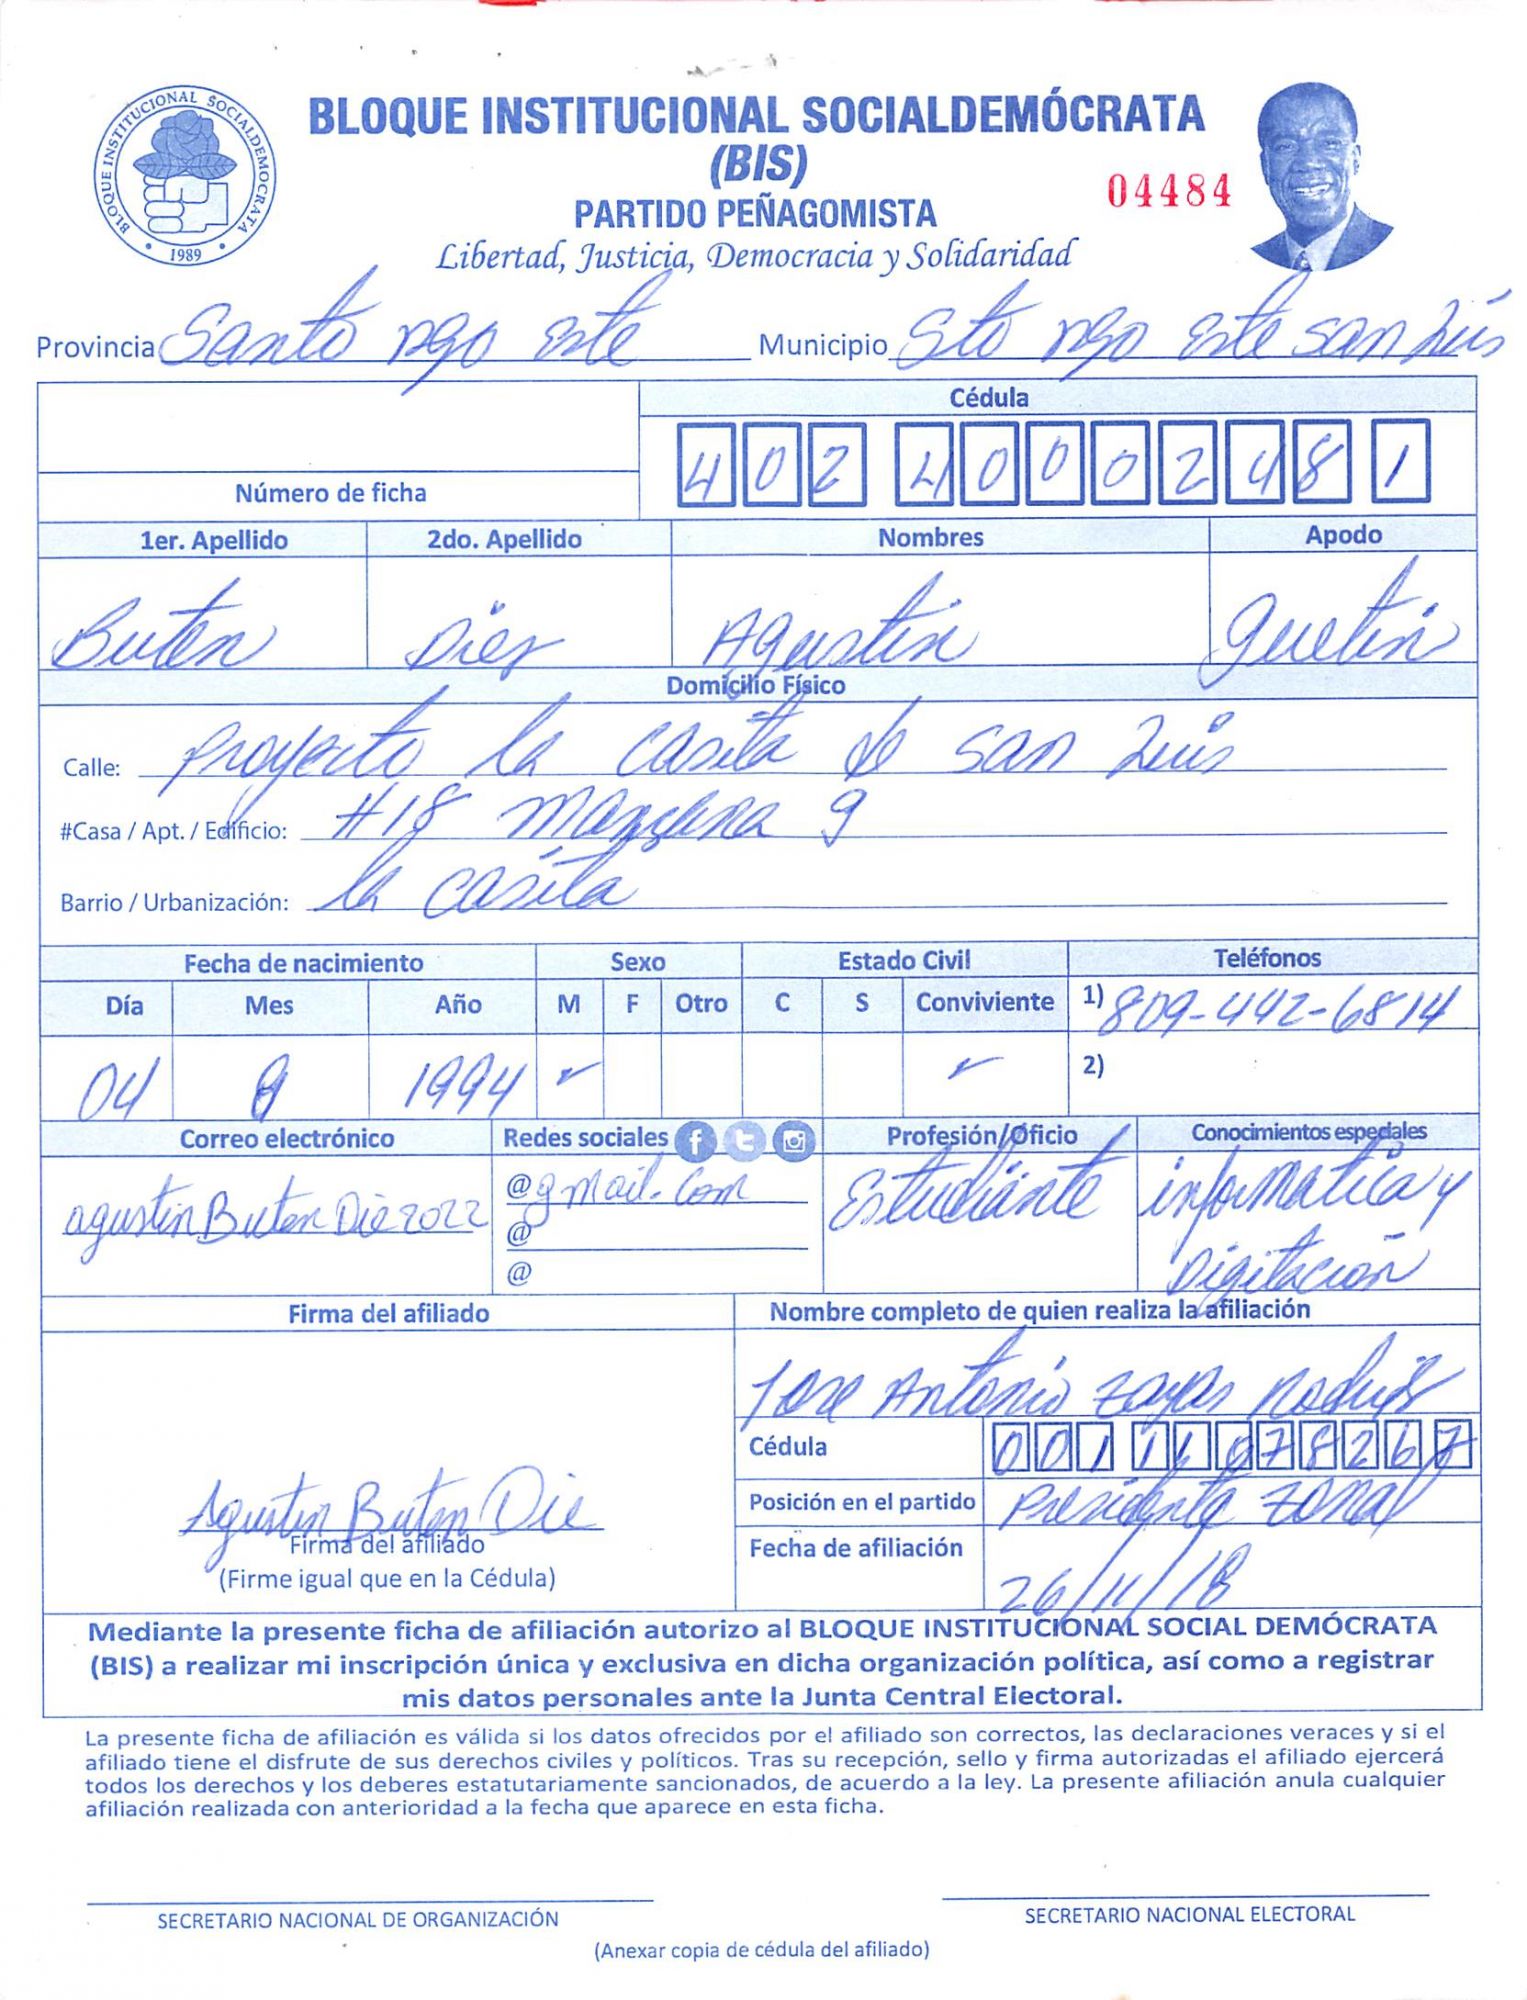 BLOQUE INSTITUCIONAL SOCIALDEMOCRATA
1989
BLOQUE INSTITUCIONAL SOCIALDEMÓCRATA
(BIS)
04484
PARTIDO PEÑAGOMISTA
Libertad, Justicia, Democracia y Solidaridad
Provincia Santo Dgo Este Municipio Sto Dgo Este San Luis
Cédula
402 4000248 1
Número de ficha
1er. Apellido 2do. Apellido Nombres Apodo
Buten Agustin
Domicilio Físico
Calle: Proyecto la casita de San Luis
#Casa / Apt. / Edificio: #18 Manzana 9
Barrio / Urbanización: la casita
Fecha de nacimiento Sexo Estado Civil Teléfonos
Día Mes Año M F Otro C S Conviviente 1) 809-442-6814
04 1994 ✓ ✓ 2)
Correo electrónico Redes sociales Profesión/Oficio Conocimientos especiales
agustinButenDie2022 @gmail.com Estudiante informatica y
@ Digitación
@
Firma del afiliado Nombre completo de quien realiza la afiliación
Jose Antonio Zayas
Cédula 001 1107826 7
Agustin Buten Die
Posición en el partido Presidente Zonal
Firma del afiliado
Fecha de afiliación 26/11/18
(Firme igual que en la Cédula)
Mediante la presente ficha de afiliación autorizo al BLOQUE INSTITUCIONAL SOCIAL DEMÓCRATA
(BIS) a realizar mi inscripción única y exclusiva en dicha organización política, así como a registrar
mis datos personales ante la Junta Central Electoral.
La presente ficha de afiliación es válida si los datos ofrecidos por el afiliado son correctos, las declaraciones veraces y si el
afiliado tiene el disfrute de sus derechos civiles y políticos. Tras su recepción, sello y firma autorizadas el afiliado ejercerá
todos los derechos y los deberes estatutariamente sancionados, de acuerdo a la ley. La presente afiliación anula cualquier
afiliación realizada con anterioridad a la fecha que aparece en esta ficha.
SECRETARIO NACIONAL DE ORGANIZACIÓN SECRETARIO NACIONAL ELECTORAL
(Anexar copia de cédula del afiliado)